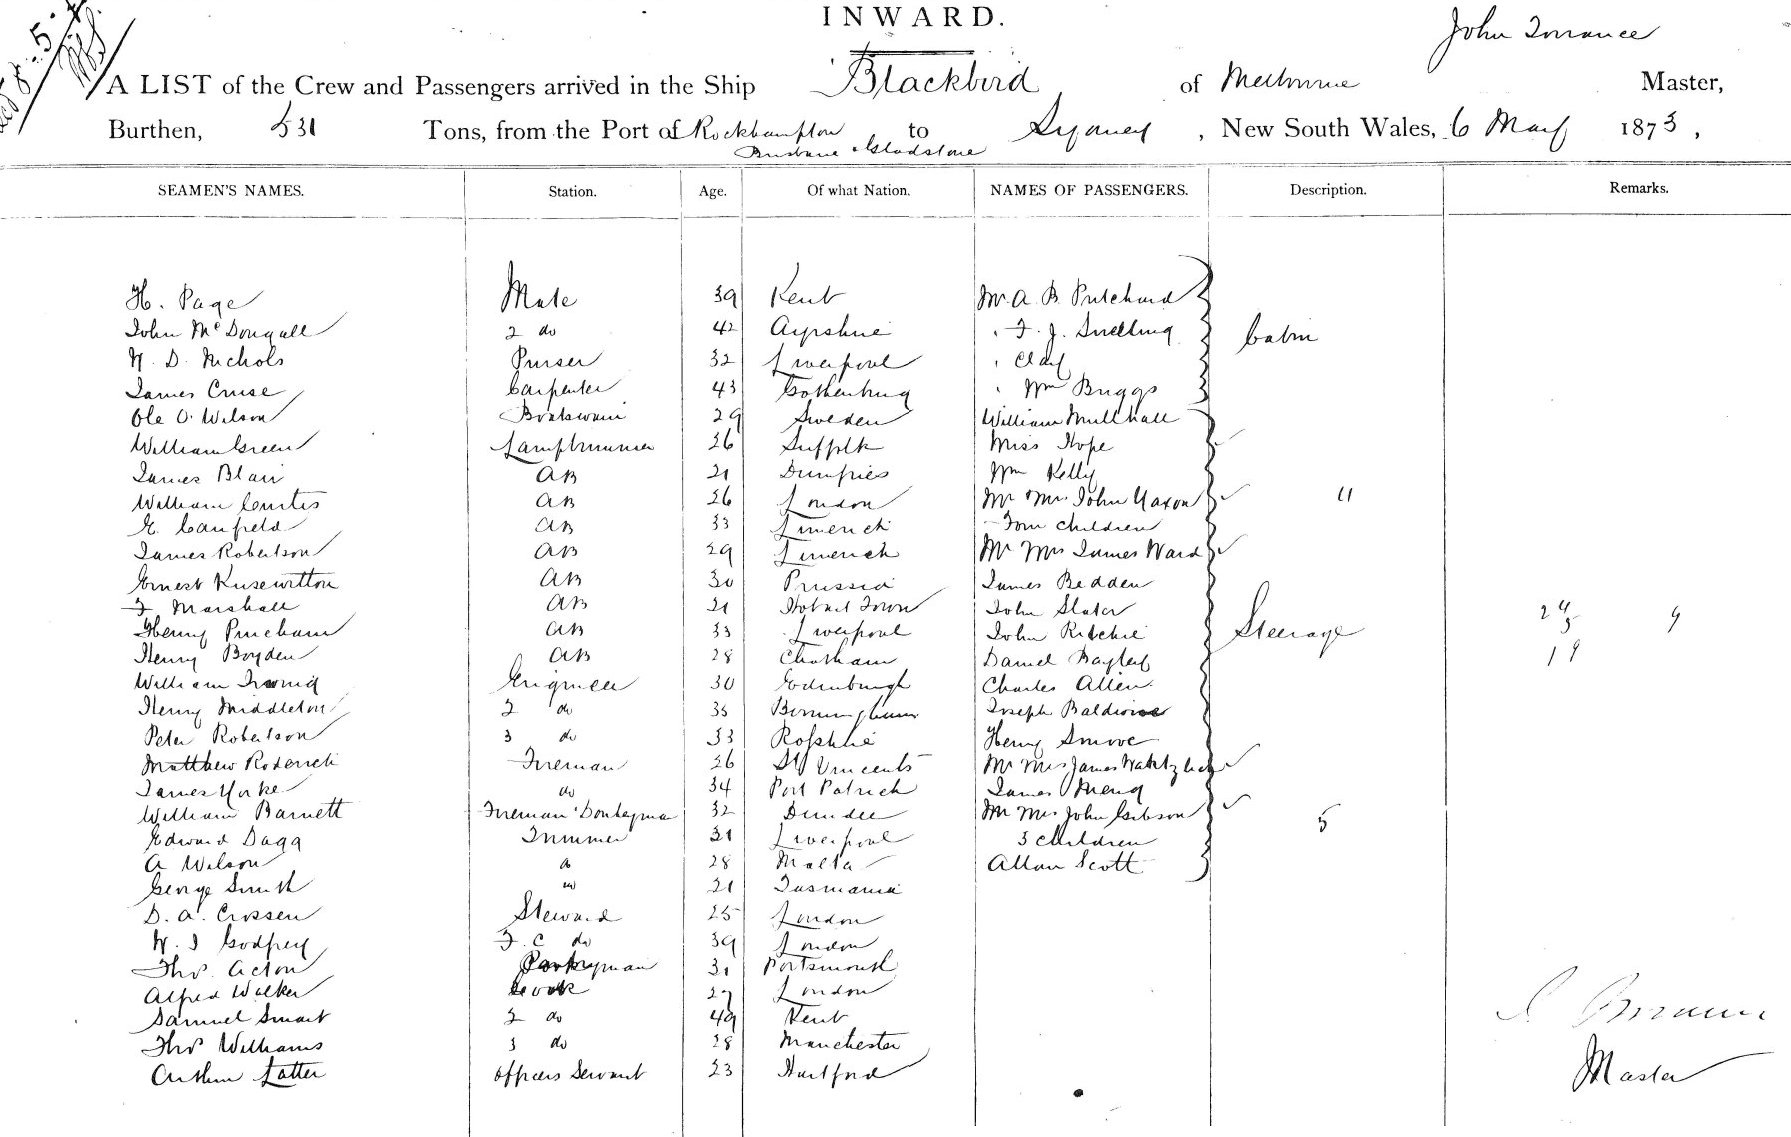 INWARD.
John Torrance
A LIST of the Crew and Passengers arrived in the Ship Blackbird of Melbourne Master,
Burthen, 531 Tons, from the Port of Rockhampton to Sydney, New South Wales, 6 May 1873,
Brisbane & Gladstone
SEAMEN'S NAMES. Station. Age. Of what Nation. NAMES OF PASSENGERS. Description. Remarks.
H. Page Mate 39 Kent Mr A. B. Pritchard
John McDougall 2 do 42 Ayrshire " F. J. Snelling Cabin
W. D. Nichols Purser 32 Liverpool " Clay
James Cruse Carpenter 43 Gothenburg " Wm Briggs
Ole O. Wilson Boatswain 29 Sweden William Mullhall
William Green Lamptrimmer 26 Suffolk Miss Hope
James Blair AB 21 Dumfries Wm Kelly
William Curtis AB 26 London Mr Mrs John Yaxon 11
E. Canfield AB 33 Limerick Four children
James Robertson AB 29 Limerick Mr Mrs James Ward
Ernest Kusewitton AB 30 Prussia James Bedden
F Marshall AB 21 Hobart Town John Slater
Henry AB 33 Liverpool John Ritchie Steerage
Henry Boyden AB 28 Chatham Daniel Bayley 19
William Engineer 30 Edinburgh Charles Allen
Henry Middleton 2 do 35 Birmingham Joseph Baldwin
Peter Robertson 3 do 33 Rosshire Henry
Matthew Roderick Fireman 26 St Vincents Mr Mrs James
James Yorke do 34 Port Patrick James
William Barnett Fireman & Donkeyman 32 Dundee Mr Mrs John Gibson 5
Edward Dagg Trimmer 31 Liverpool 3 children
A Wilson do 28 Malta Allan Scott
George Smith do 21 Tasmania
D. A. Crossen Steward 25 London
W. J Godfrey F. C do 39 London
Thos Acton Pantryman 31 Portsmouth
Alfred Walker Cook 27 London
Samuel Smart 2 do 49 Kent
Thos Williams 3 do 28 Manchester
Arthur Latter Officers Servant 23 Hartford
Master